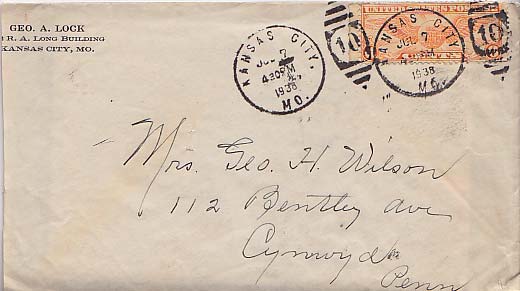 GEO. A. LOCK
R. A. LONG BUILDING
KANSAS CITY, MO.
KANSAS CITY,
JUL 7
430PM
1938
MO.
10
UNITED STATES POSTAGE
KANSAS CITY,
JUL 7
430PM
1938
MO.
10
Mrs. Geo. H. Wilson
112 Bentley ave
Cynwyd
Penn